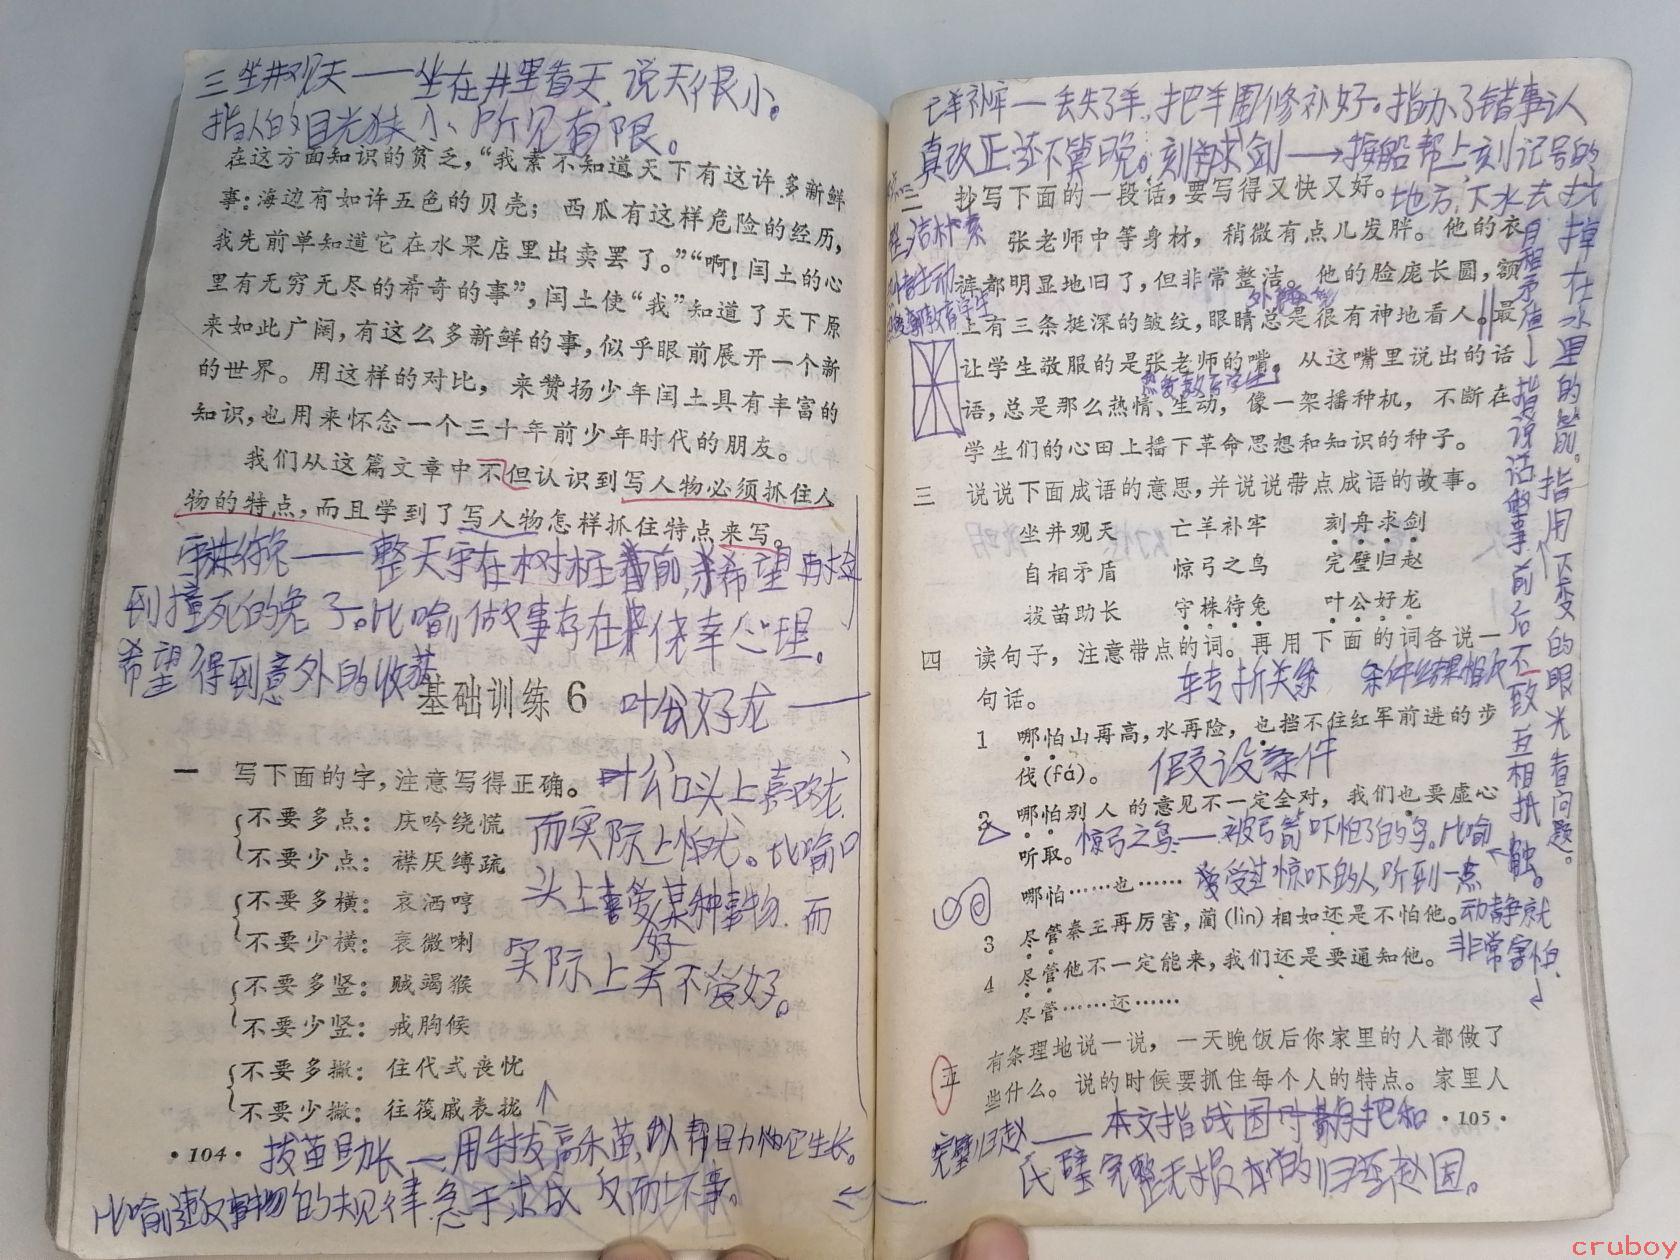 三 坐井观天——坐在井里看天,说天很小。
指人的目光狭小,所见有限。
在这方面知识的贫乏,“我素不知道天下有这许多新鲜
事:海边有如许五色的贝壳;西瓜有这样危险的经历,
我先前单知道它在水果店里出卖罢了。”“啊!闰土的心
里有无穷无尽的希奇的事”,闰土使“我”知道了天下原
来如此广阔,有这么多新鲜的事,似乎眼前展开一个新
的世界。用这样的对比,来赞扬少年闰土具有丰富的
知识,也用来怀念一个三十年前少年时代的朋友。
我们从这篇文章中不但认识到写人物必须抓住人
物的特点,而且学到了写人物怎样抓住特点来写。
守株待兔——整天守在树桩前,希望再
到撞死的兔子。比喻做事存在侥幸心理。
希望得到意外的收获
基础训练6
叶公好龙——
一 写下面的字,注意写得正确。
叶公口头上喜欢龙,
不要多点:庆吟绕慌
而实际上怕龙。比喻口
不要少点:襟厌缚疏
头上喜爱某种事物,而
不要多横:哀洒哼
不要少横:衰微喇
实际上并不爱好。
不要多竖:贼竭猴
不要少竖:戒胸候
不要多撇:住代式丧忧
不要少撇:往筏戚表拢
·104·
拔苗助长——用手拔高禾苗,以帮助它生长。
比喻违反事物的规律,急于求成,反而坏事。
亡羊补牢——丢失了羊,把羊圈修补好。指办了错事认
真改正还不算晚。刻舟求剑——→按船帮上刻记号的
地方,下水去找
掉在水里的剑。指用不变的眼光看问题。
二 抄写下面的一段话,要写得又快又好。
张老师中等身材,稍微有点儿发胖。他的衣
裤都明显地旧了,但非常整洁。他的脸庞长圆,额
上有三条挺深的皱纹,眼睛总是很有神地看人。最
让学生敬服的是张老师的嘴。从这嘴里说出的话
语,总是那么热情、生动,像一架播种机,不断在
学生们的心田上播下革命思想和知识的种子。
自相矛盾→指说话做事前后不一致,互相抵触。
三 说说下面成语的意思,并说说带点成语的故事。
坐井观天 亡羊补牢 刻舟求剑
自相矛盾 惊弓之鸟 完璧归赵
拔苗助长 守株待兔 叶公好龙
四 读句子,注意带点的词。再用下面的词各说一
句话。
转折关系
1 哪怕山再高,水再险,也挡不住红军前进的步
伐(fá)。
假设条件
2 哪怕别人的意见不一定全对,我们也要虚心
听取。
惊弓之鸟——被弓箭吓怕了的鸟。比喻
哪怕……也……
受过惊吓的人,听到一点
动静就
非常害怕。
3 尽管秦王再厉害,蔺(lìn)相如还是不怕他。
4 尽管他不一定能来,我们还是要通知他。
尽管……还……
有条理地说一说,一天晚饭后你家里的人都做了
些什么。说的时候要抓住每个人的特点。家里人
·105·
完璧归赵——本文指战国时 把和
氏璧完整无损的归还赵国。
cruboy